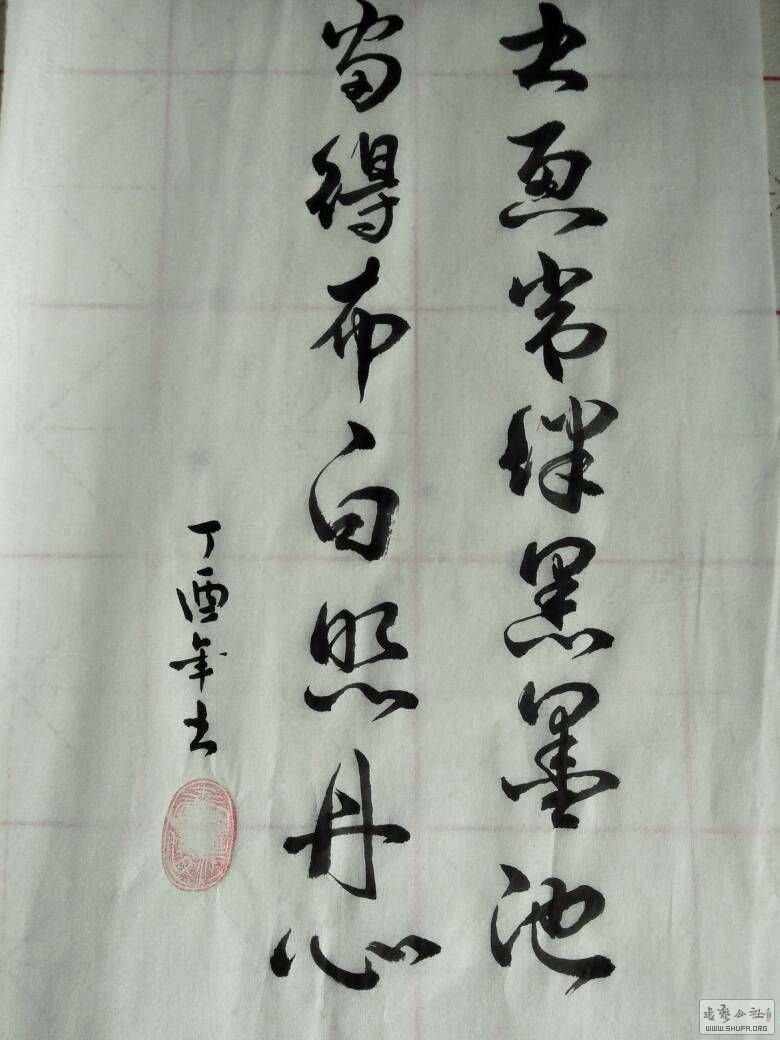 书画常伴黑墨池
留得布白照丹心
丁酉年书
书艺公社
WWW.SHUFA.ORG